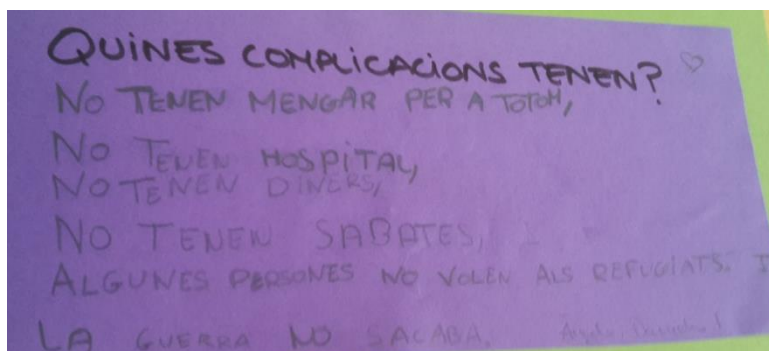 QUINES COMPLICACIONS TENEN?
NO TENEN MENGAR PER A TOTOM,
NO TENEN HOSPITAL,
NO TENEN DINERS,
NO TENEN SABATES,
ALGUNES PERSONES NO VOLEN ALS REFUGIATS. I
LA GUERRA NO SACABA.